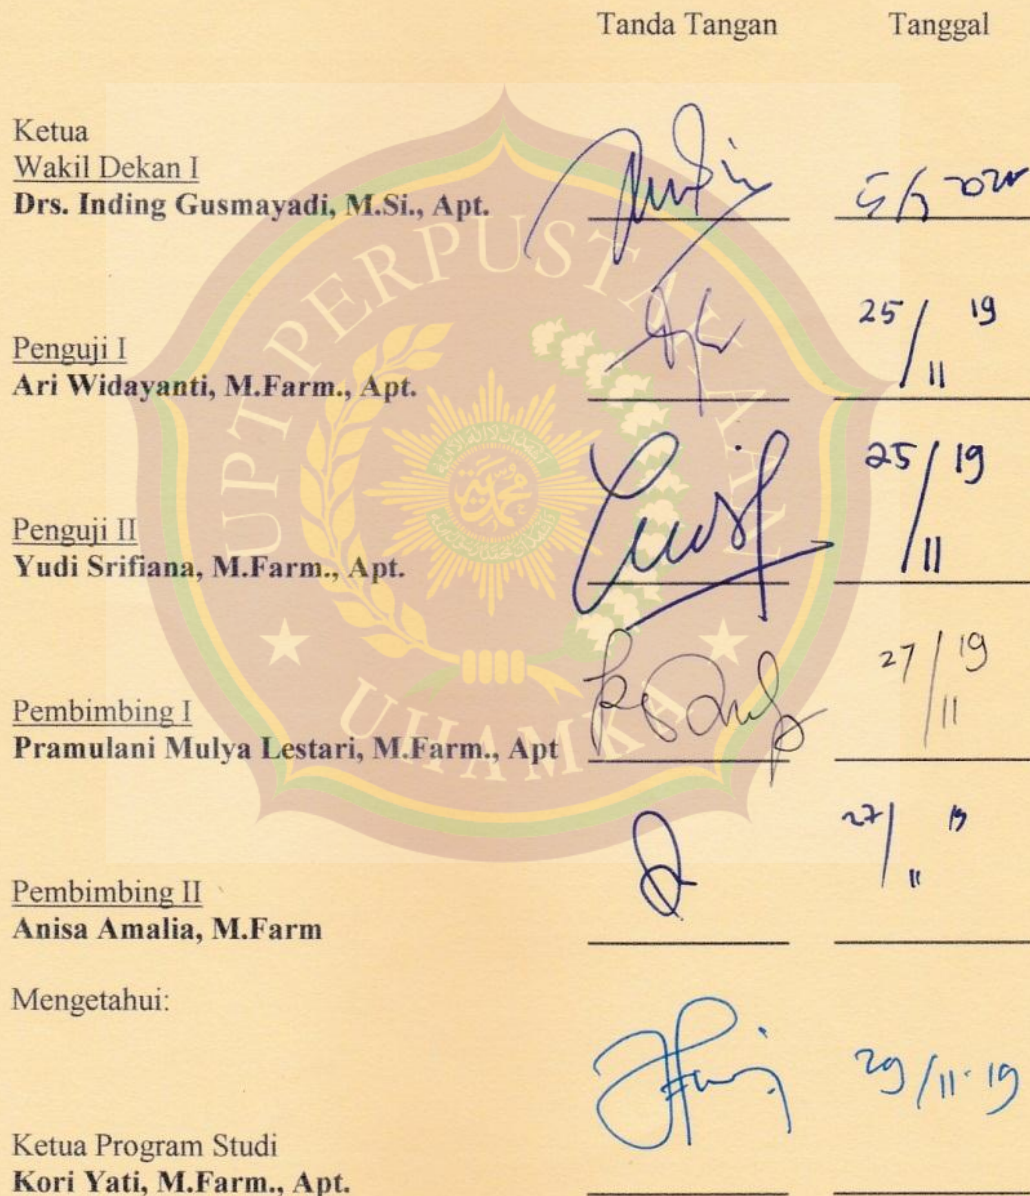 Tanda Tangan Tanggal
Ketua
Wakil Dekan I
Drs. Inding Gusmayadi, M.Si., Apt.
Penguji I
Ari Widayanti, M.Farm., Apt.
25/11 19
Penguji II
Yudi Srifiana, M.Farm., Apt.
25/11 19
Pembimbing I
Pramulani Mulya Lestari, M.Farm., Apt
27/11 19
Pembimbing II
Anisa Amalia, M.Farm
27/11 19
Mengetahui:
Ketua Program Studi
Kori Yati, M.Farm., Apt.
29/11-19
UPT PERPUSTAKAAN
UHAMKA